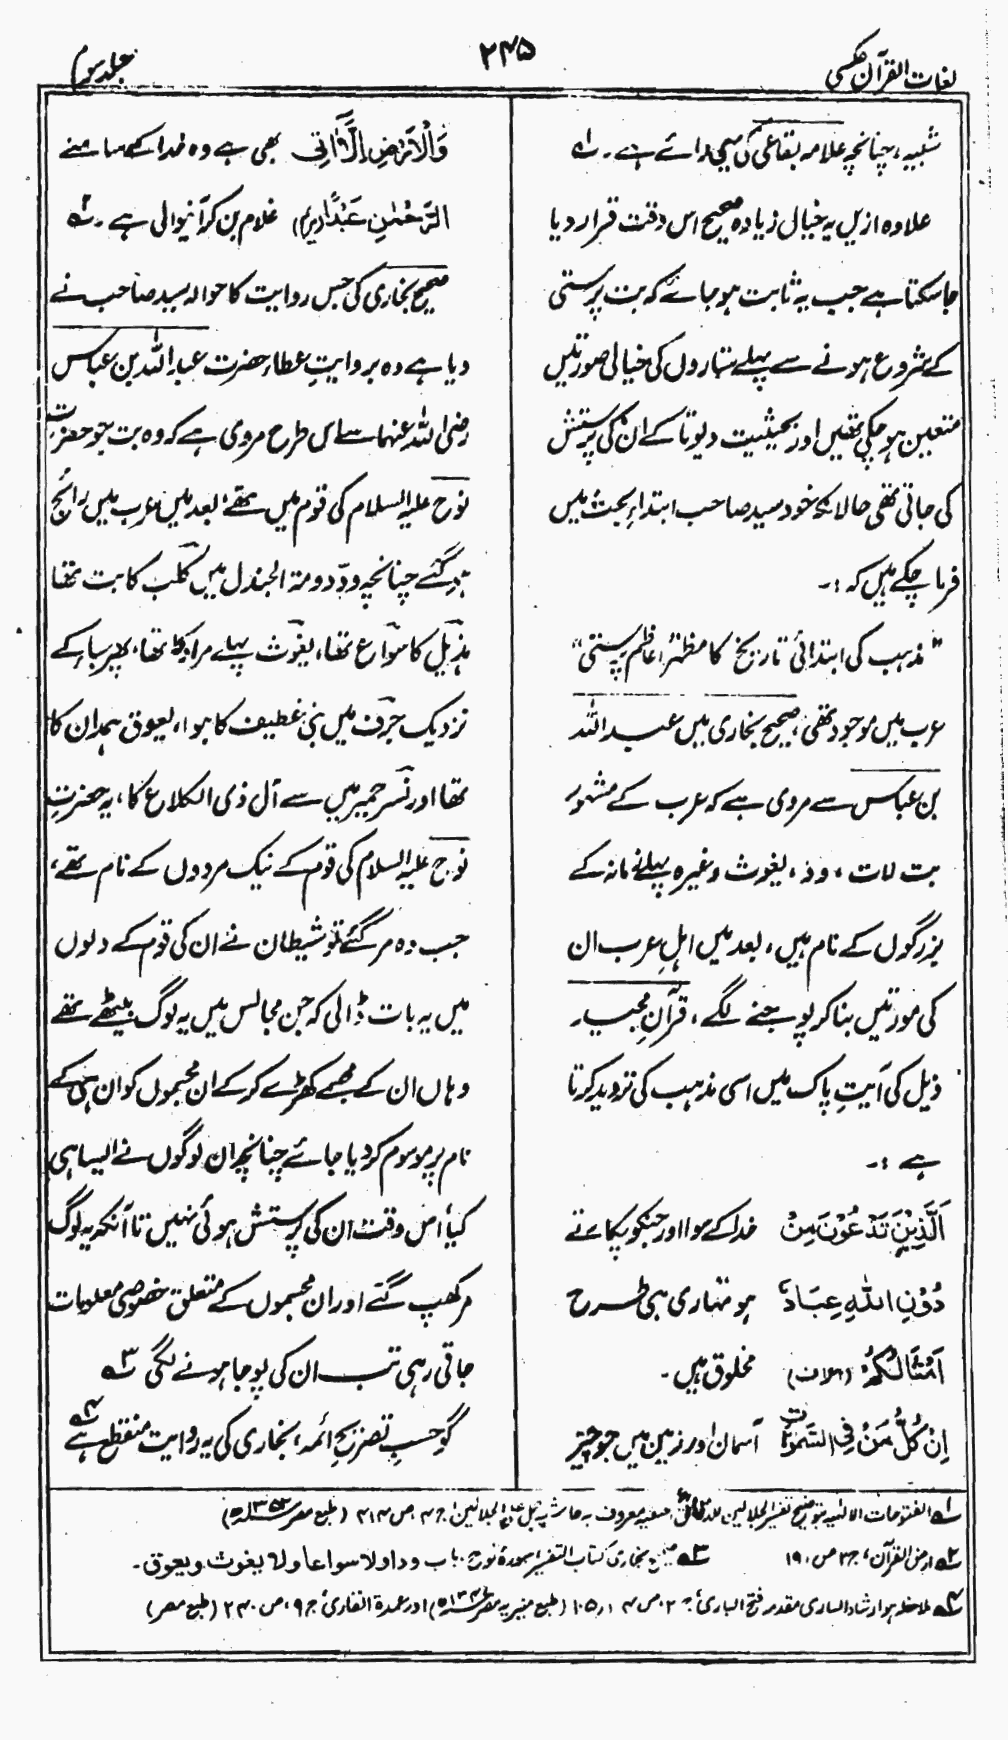 لغات القرآن عکسی
۲۴۵
جلد سوم
شبیہ، چنانچہ علامہ بقاعی کی یہی رائے ہے۔ ؎۱
علاوہ ازیں یہ خیال زیادہ صحیح اس وقت قرار دیا
جاسکتا ہے جب یہ ثابت ہو جائے کہ بت پرستی
کے شروع ہونے سے پہلے ستاروں کی خیالی صورتیں
متعین ہوچکی تھیں اور بحیثیت دیوتا کے ان کی پرستش
کی جاتی تھی حالانکہ خود سید صاحب ابتداءِ بحث میں
فرما چکے ہیں کہ :۔
"مذہب کی ابتدائی تاریخ کا مظہر اعاظم پرستی"
عرب میں موجود تھی، صحیح بخاری میں عبداللہ
بن عباس سے مروی ہے کہ عرب کے مشہور
بت لات، ود، یغوث وغیرہ پہلے زمانہ کے
بزرگوں کے نام ہیں، بعد میں اہلِ عرب ان
کی مورتیں بنا کر پوجنے لگے، قرآنِ مجید
ذیل کی آیتِ پاک میں اسی مذہب کی تردید کرتا
ہے :۔
اَلَّذِیْنَ تَدْعُوْنَ مِنْ خدا کے سوا اور جنکو پکارتے
دُوْنِ اللّٰہِ عِبَادٌ ہو تمہاری ہی طرح
اَمْثَالُکُمْ (اعراف) مخلوق ہیں۔
اِنْ کُلُّ مَنْ فِی السَّمٰوٰتِ آسمان اور زمین میں جو چیز
وَالْاَرْضِ اِلَّآ اٰتِی بھی ہے وہ خدا کے سامنے
الرَّحْمٰنِ عَبْدًا (مریم) غلام بن کر آنیوالی ہے۔ ؎۲
صحیح بخاری کی جس روایت کا حوالہ سید صاحب نے
دیا ہے وہ بروایتِ عطاء حضرت عبداللہ بن عباس
رضی اللہ عنہما سے اس طرح مروی ہے کہ وہ بت جو حضرت
نوح علیہ السلام کی قوم میں تھے بعد میں عرب میں رائج
ہوگئے چنانچہ ودّ دومۃ الجندل میں کلب کا بت تھا
ہذیل کا سواع تھا، یغوث پہلے مراد کا تھا، پھر سبار کے
نزدیک جرف میں بنی غطیف کا ہوا، یعوق ہمدان کا
تھا اور نسر حمیر میں سے آل ذی الکلاع کا، یہ حضرتِ
نوح علیہ السلام کی قوم کے نیک مردوں کے نام تھے،
جب وہ مر گئے تو شیطان نے ان کی قوم کے دلوں
میں یہ بات ڈالی کہ جن مجالس میں یہ لوگ بیٹھتے تھے
وہاں ان کے مجسمے کھڑے کر کے ان مجسموں کو ان ہی کے
نام پر موسوم کر دیا جائے چنانچہ ان لوگوں نے ایسا ہی
کیا، اس وقت ان کی پرستش ہوئی نہیں تا آنکہ یہ لوگ
مرکھپ گئے اور ان مجسموں کے متعلق خصوصی معلومات
جاتی رہی تب ان کی پوجا ہونے لگی ؎۳
گو حسبِ تصریحِ ائمہ، بخاری کی یہ روایت منقطع ہے ؎۴
؎۱ الفتوحات الالٰہیہ بتوضیح تفسیر الجلالین للدقائق الخفیہ معروف بہ حاشیہ جمل علی الجلالین، ج۴ ص ۴۱۴ (طبع مصر ۱۳۵۲ھ)
؎۲ ارض القرآن، ج۲ ص ۱۹۰ ؎۳ صحیح بخاری کتاب التفسیر سورۃ نوح، باب ودا ولا سواعا ولا یغوث ویعوق۔
؎۴ ملاحظہ ہو ارشاد الساری مقدمہ فتح الباری، ج ۲، ص ۱۰۵،۱۰۴ (طبع منیریہ مصر ۱۳۴۷ھ) اور عمدۃ القاری، ج۱۹، ص ۲۴۰ (طبع مصر)